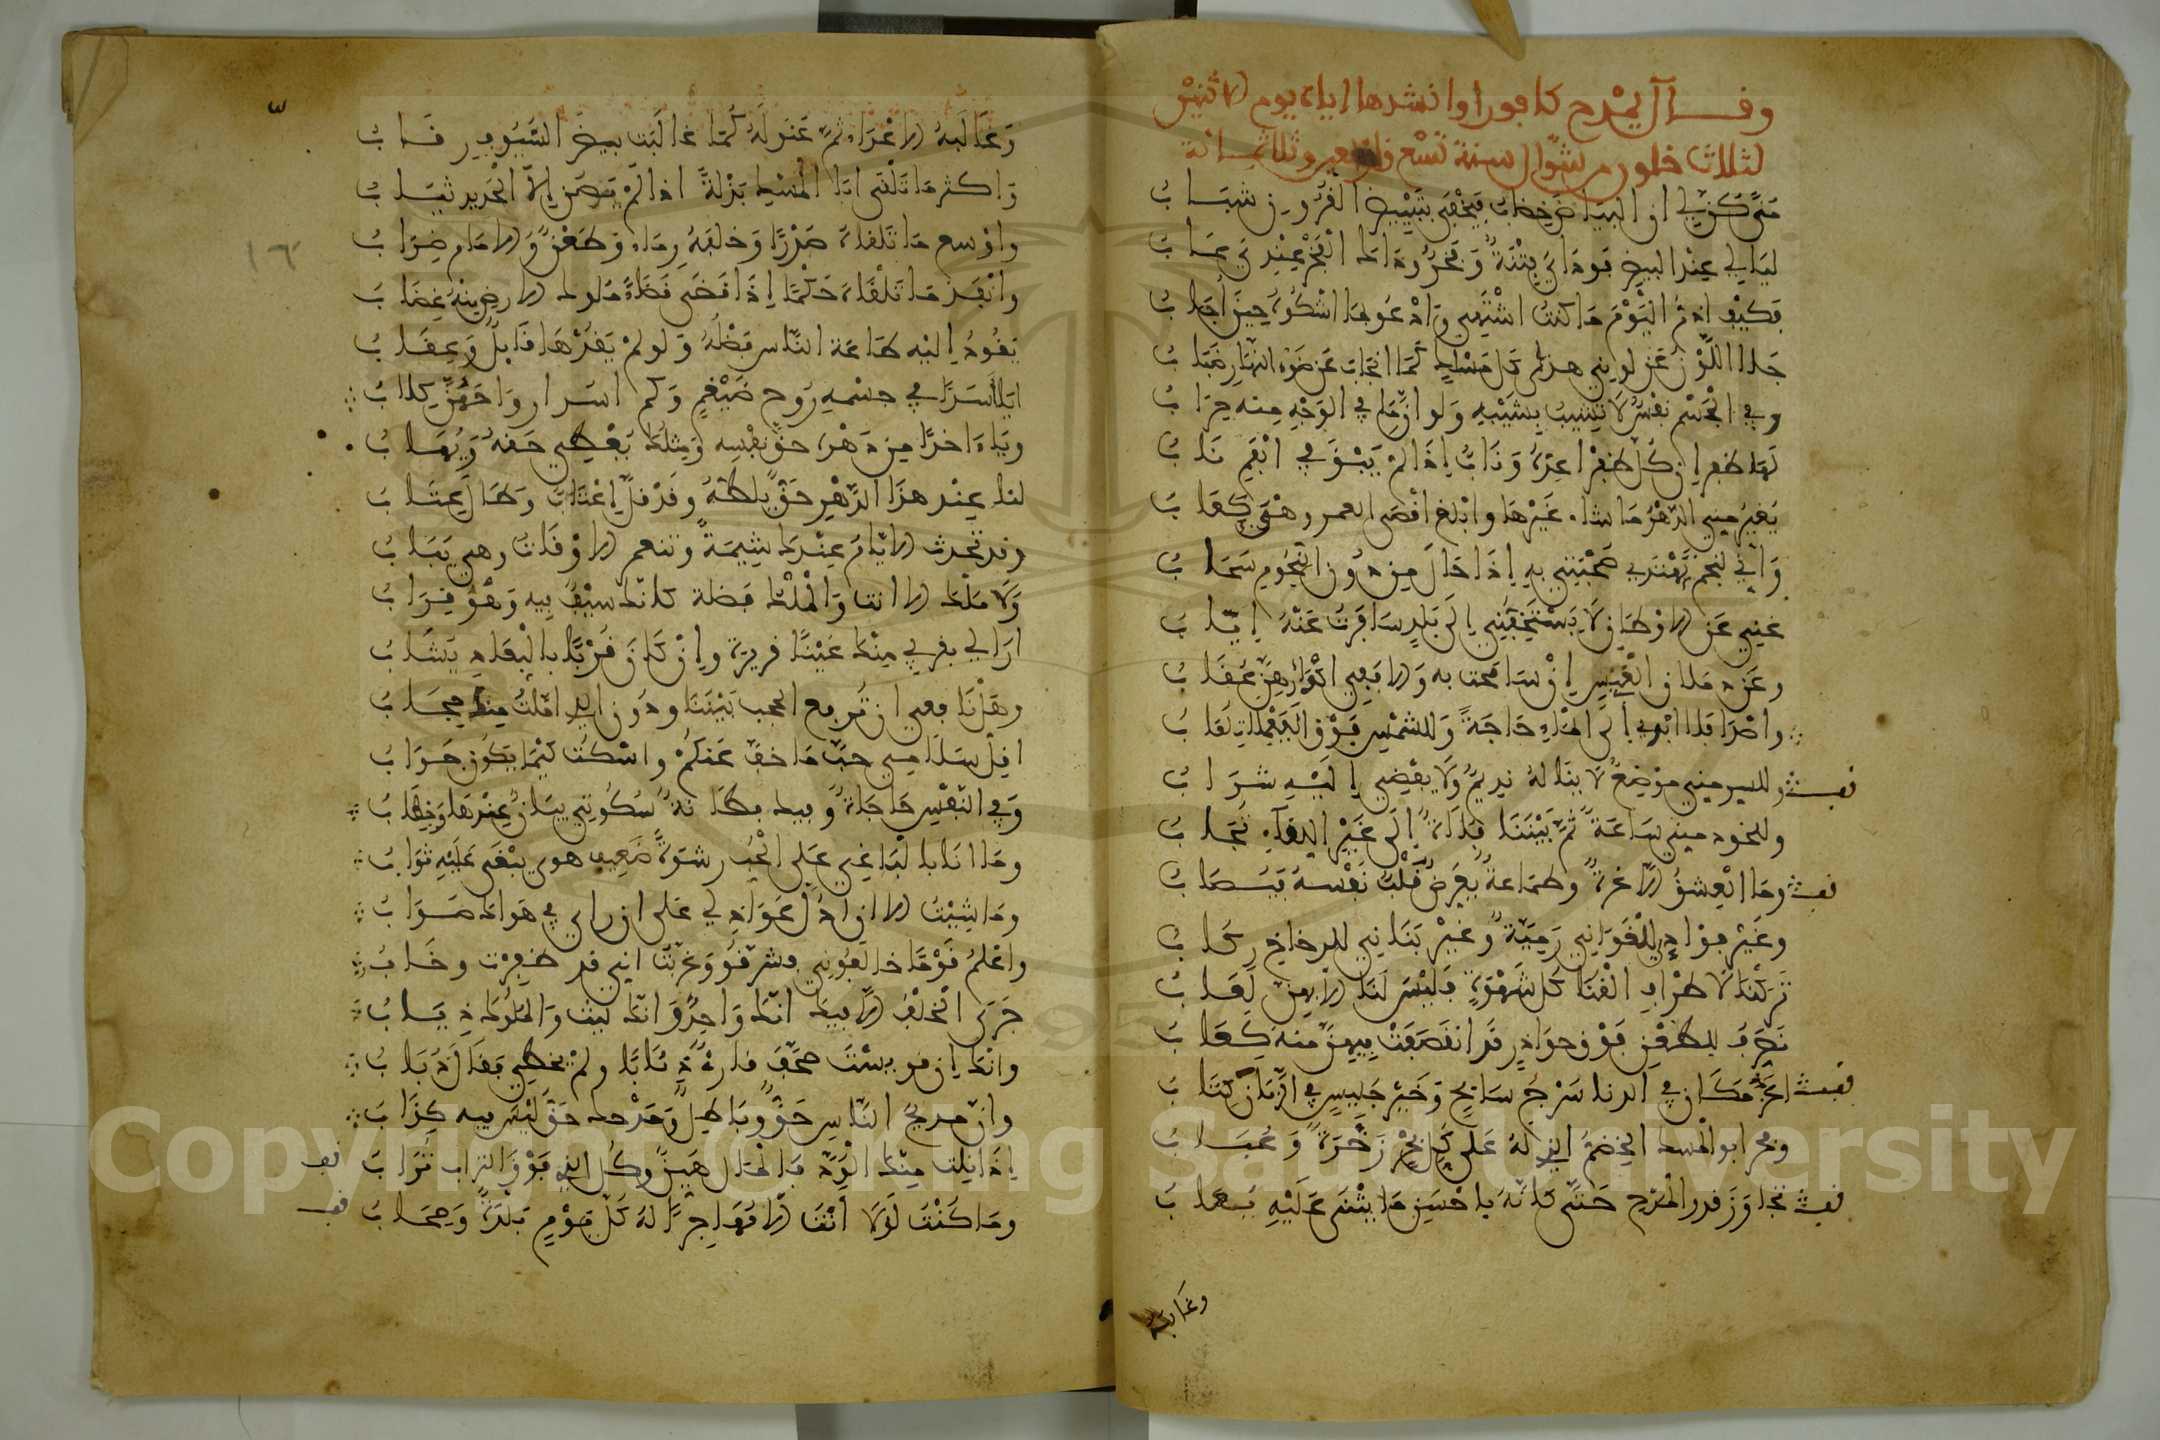 وقال يمدح كافورا وانشدها اياه يوم الاثنين
لثلاث خلون من شوال سنة تسع واربعين وثلاثمائة
منى كن لي ان البياض خضاب فيخفى بتبييض القرون شباب
ليالي عند البيض فوداي فتنة وفخر وذاك الفخر عندي عاب
فكيف اذم اليوم ما كنت اشتهي وادعو بما اشكوه حين اجاب
جلا اللون عن لون هدى كل مسلك كما انجاب عن ضوء النهار ضباب
وفي الجسم نفس لا تشيب بشيبه ولو ان ما في الوجه منه حراب
لها ظفر ان كل ظفر اعده وناب اذا لم يبق في الفم ناب
يغير مني الدهر ما شاء غيرها وابلغ اقصى العمر وهي كعاب
واني لنجم تهتدي صحبتي به اذا حال من دون النجوم سحاب
غني عن الاوطان لا يستخفني الى بلد سافرت عنه اياب
وعن ذملان العيس ان سامحت به والا ففي اكوارهن عقاب
واصدا فلا ابدي الى الماء حاجة وللشمس فوق اليعملات لعاب
وللسر مني موضع لا يناله نديم ولا يفضي اليه شراب
وللخود مني ساعة ثم بيننا فلاة الى غير اللقاء تجاب
وما العشق الا غرة وطماعة يعرض قلب نفسه فيصاب
وغير فؤادي للغواني رمية وغير بناني للرخاخ ركاب
تركنا لاطراف القنا كل شهوة فليس لنا الا بهن لعاب
نصرفه للطعن فوق حواذر قد انقصفت فيهن منه كعاب
اعز مكان في الدنا سرج سابح وخير جليس في الزمان كتاب
وبحر ابو المسك الخضم الذي له على كل بحر زخرة وعباب
تجاوز قدر المدح حتى كانه باحسن ما يثنى عليه يعاب
وغالبه
وغالبه الاعداء ثم عنوا له كما غالبت بيض السيوف رقاب
واكثر ما تلقى ابا المسك بذلة اذا لم يصن الا الحديد ثياب
واوسع ما تلقاه صدرا وخلفه رماء وطعن والامام ضراب
وانفذ ما تلقاه حكما اذا قضى قضاء ملوك الارض منه غضاب
يقود اليه طاعة الناس فضله ولو لم يقدها نايل وعقاب
ايا اسدا في جسمه روح ضيغم وكم اسد ارواحهن كلاب
ويا آخذا من دهره حق نفسه ومثلك يعطي حقه ويهاب
لنا عند هذا الدهر حق يلطه وقد قل اعتاب وطال عتاب
وقد تحدث الايام عندك شيمة وتنعم الاوقات وهي يباب
ولا ملك الا انت والملك فضلة كانك سيف فيه وهو قراب
ارى لي بقربي منك عينا قريرة وان كان قربا بالبعاد يشاب
وهل نافعي ان ترفع الحجب بيننا ودون الذي املت منك حجاب
اقل سلامي حب ما خف عنكم واسكت كيما يكون جواب
وفي النفس حاجات وفيك فطانة سكوتي بيان عندها وخطاب
وما انا بالباغي على الحب رشوة ضعيف هوى يبغى عليه ثواب
وما شيت الا ان ادل عواذلي على ان رايي في هواك صواب
واعلم قوما خالفوني فشرقوا وغربت اني قد ظفرت وخابوا
جرى الخلف الا فيك انك واحد وانك ليث والملوك ذياب
وانك ان قويست صحف قارئ ذيابا ولم يخطي فقال ذباب
وان مديح الناس حق وباطل ومدحك حق ليس فيه كذاب
اذا نلت منك الود فالمال هين وكل الذي فوق التراب تراب
وما كنت لولا انت الا مهاجرا له كل يوم بلدة وصحاب
Copyright © King Saud University